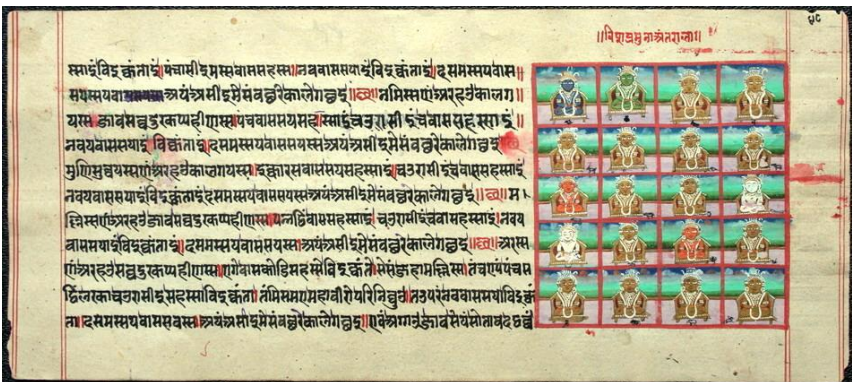 स्साइंविइक्कंताइं।पंचासीइमस्सवाससहस्स।नववाससयाइंविइक्कंताइं।दसमस्सयवास॥
सयस्सयवा अयंअसीइमेसंवच्छरेकालेगच्छइ॥छ॥नमिस्सणंअरहउकालग॥
यस्स।जावसव्वदुरकप्पहीणस्स।पंचवाससयसहस्साइंचउरासीइंचवाससहस्साइं॥
नवयवाससयाइं विइक्कंताइं।दसमस्सयवाससयस्सअयंअसीइमेसंवच्छरेकालेगच्छइ
मुणिसुव्वयस्सणंअरहउकालगयस्स।इक्कारसवाससयसहस्साइं।चउरासीइंचवाससहस्साइं
नवयवाससयाइंविइक्कंताइंदसमस्सयवाससयस्सअयंअसीइमेसंवच्छरेकालेगच्छइ॥छ॥म।
ल्लिस्सणंअरहउजावसव्वदुरकप्पहीणस्स।पन्नट्ठिंवाससहस्साइं।चउरासीइंचवाससहस्साइं।नवय
वाससयाइंविइक्कंताइं।दसमस्सयवाससयस्स।अयंअसीइमेसंवच्छरेकालेगच्छइ॥छ॥अरस्स
णंअरहउसव्वदुरकप्पहीणस्स।एगेवासकोडिसहस्सेविइक्कंते।सेसंजहामल्लिस्स।तंचएयंपंचस
ट्ठिंलरकाचउरासीइसहस्साविइक्कंता।तंमिसमएमहावीरोपरिनिव्वुउ।तउपरंनववाससयाविइक्कं
ता।दसमस्सयवाससयस्स।अयंअसीइमेसंवच्छरेकालेगच्छइ।एवंअग्गउजावसेयंसोतावदट्ठव्वं